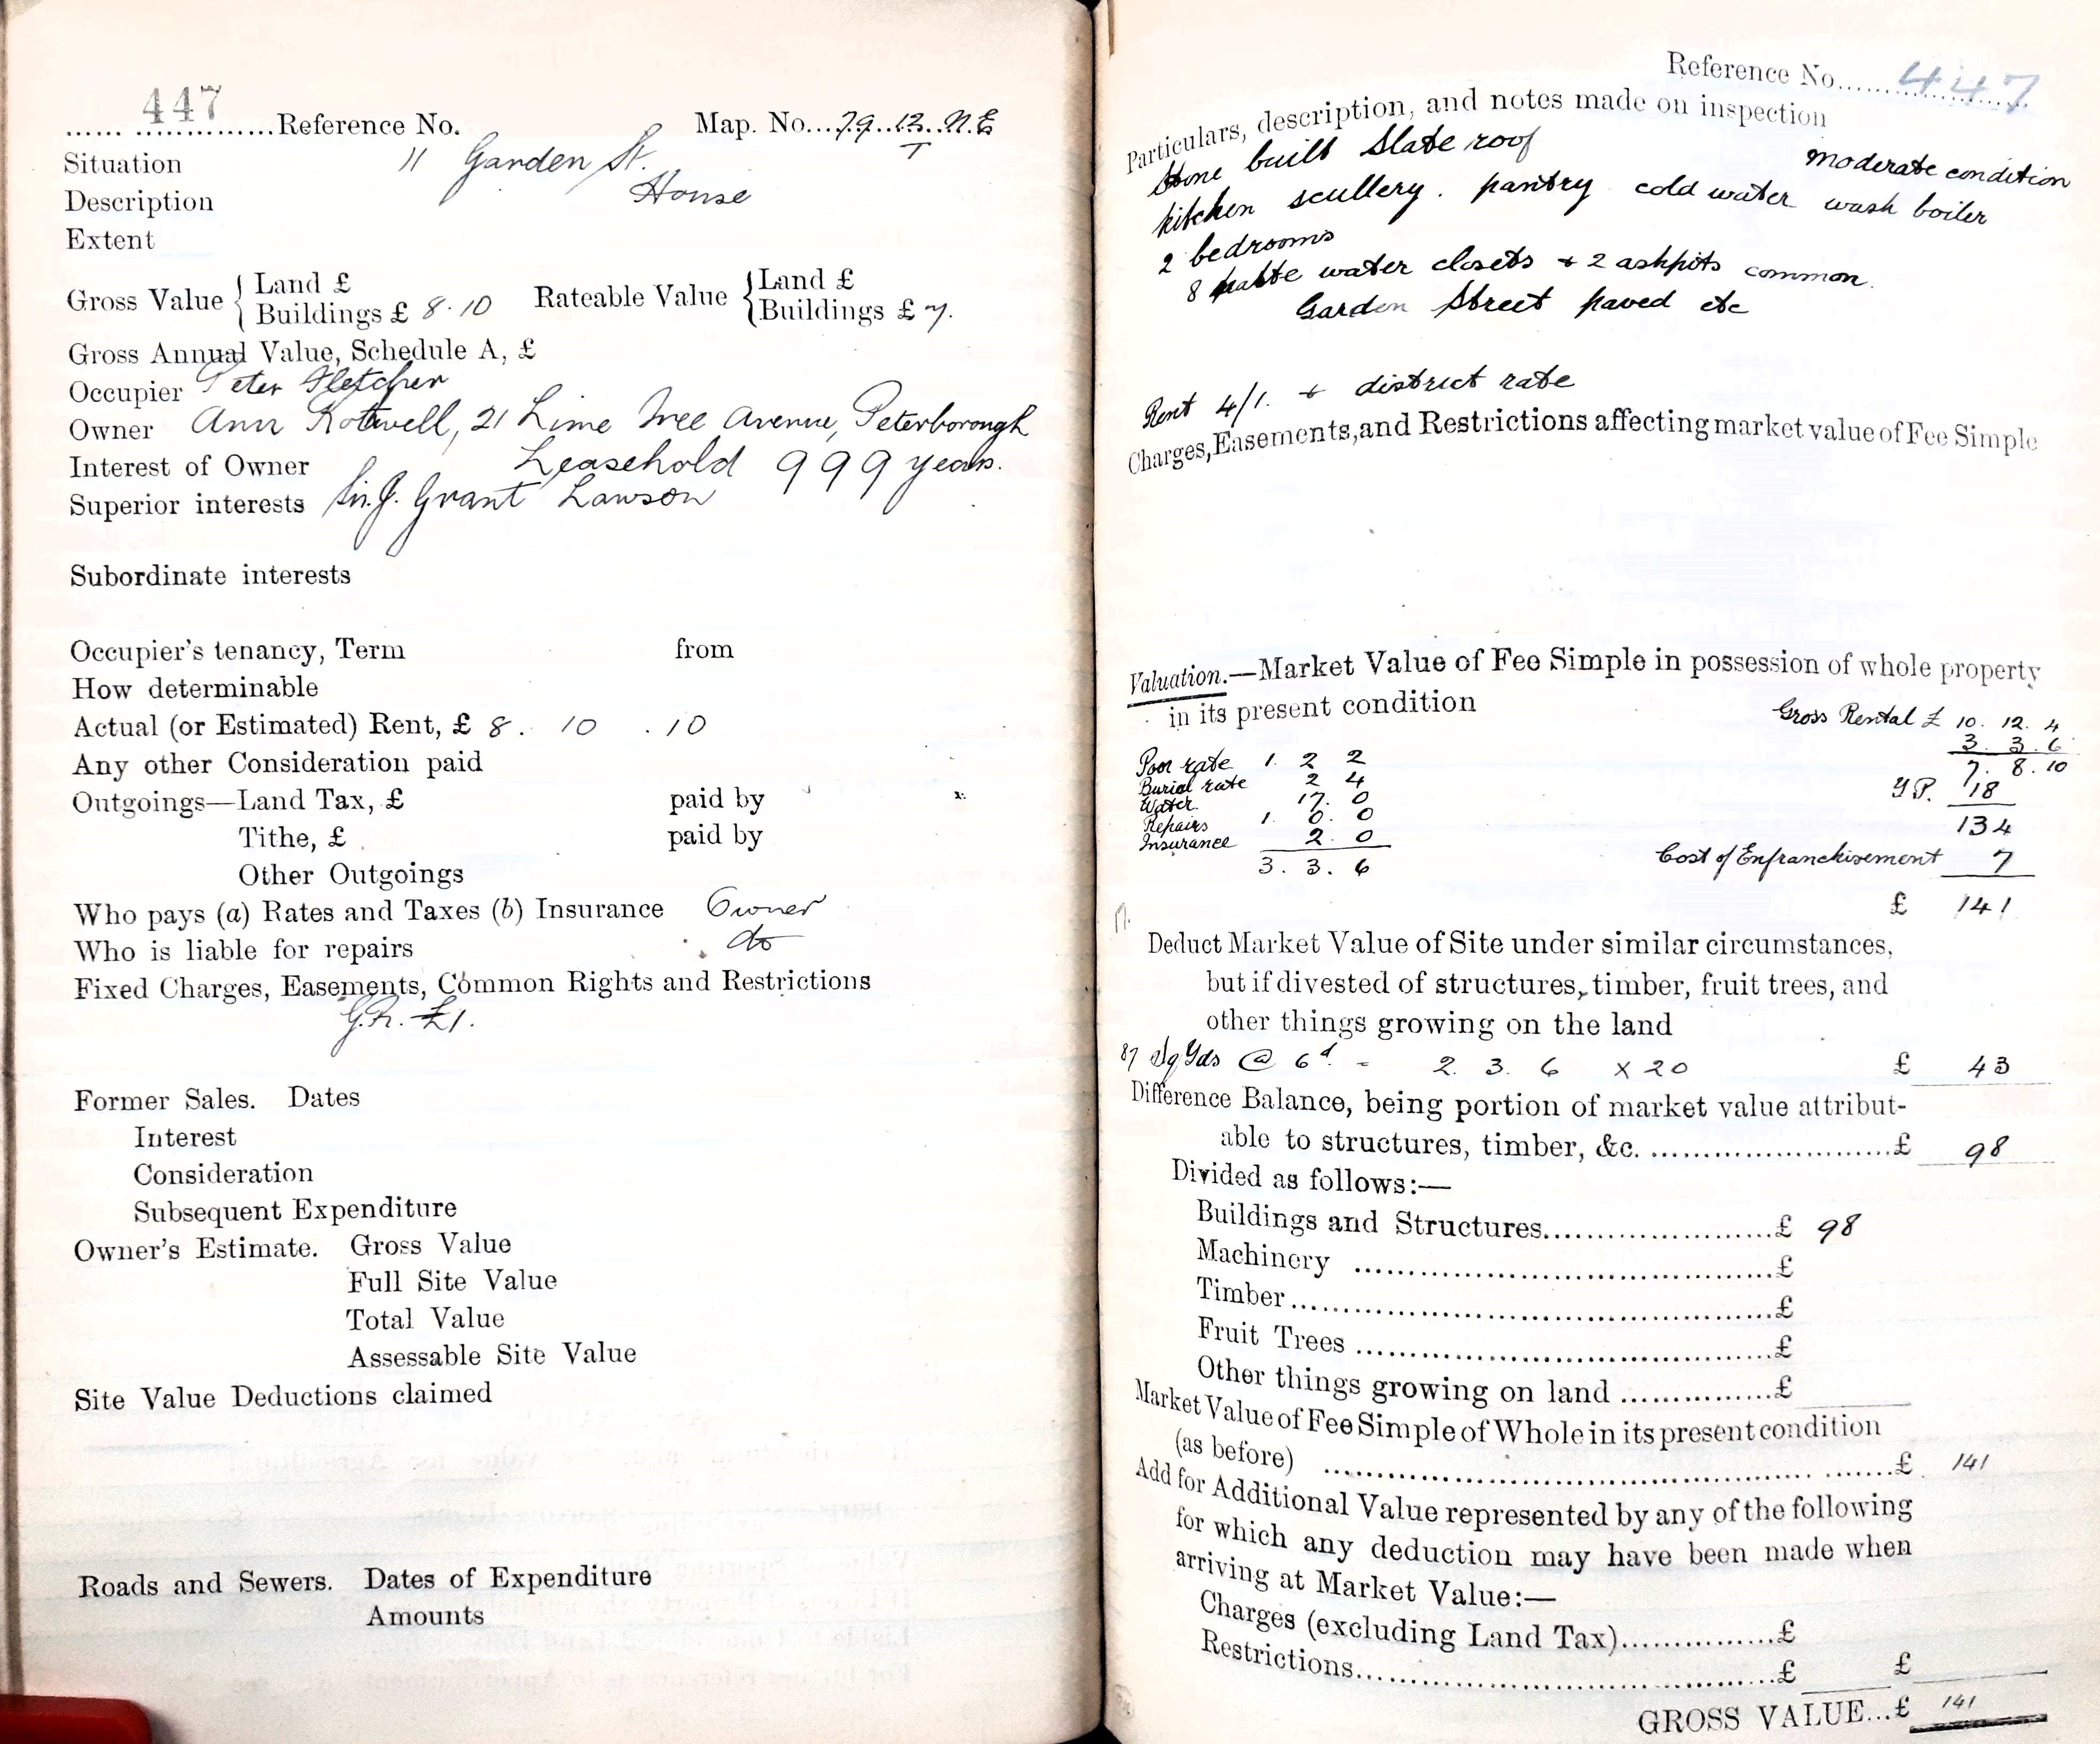 447
...... ..............Reference No. Map. No...79..13..N.E
T
Situation 11 Garden St.
Description House
Extent
Gross Value { Land £ Rateable Value { Land £
Buildings £ 8.10 Buildings £ 7.
Gross Annual Value, Schedule A, £
Occupier Peter Fletcher
Owner Ann Rothwell, 21 Lime Tree Avenue, Peterborough
Interest of Owner Leasehold 999 years.
Superior interests Sir. J. Grant Lawson
Subordinate interests
Occupier's tenancy, Term from
How determinable
Actual (or Estimated) Rent, £ 8. 10 .10
Any other Consideration paid
Outgoings—Land Tax, £ paid by
Tithe, £ paid by
Other Outgoings
Who pays (a) Rates and Taxes (b) Insurance Owner
Who is liable for repairs do
Fixed Charges, Easements, Common Rights and Restrictions
G.R. £1.
Former Sales. Dates
Interest
Consideration
Subsequent Expenditure
Owner's Estimate. Gross Value
Full Site Value
Total Value
Assessable Site Value
Site Value Deductions claimed
Roads and Sewers. Dates of Expenditure
Amounts
Reference No..... 447
Particulars, description, and notes made on inspection
Stone built Slate roof moderate condition
kitchen scullery. pantry cold water wash boiler
2 bedrooms
8 water closets + 2 ashpits common.
Garden Street paved etc
Rent 4/1. + district rate
Charges, Easements, and Restrictions affecting market value of Fee Simple
Valuation.—Market Value of Fee Simple in possession of whole property
in its present condition
Gross Rental £ 10. 12. 4
3. 3. 6
7. 8. 10
Y.P. 18
134
Cost of Enfranchisement 7
£ 141
Poor rate 1. 2 2
Burial rate 2 4
Water. 17. 0
Repairs 1. 0. 0
Insurance 2. 0
3. 3. 6
Deduct Market Value of Site under similar circumstances,
but if divested of structures, timber, fruit trees, and
other things growing on the land
87 Sq Yds @ 6d. = 2. 3. 6 x 20 £ 43
Difference Balance, being portion of market value attribut-
able to structures, timber, &c. ..........................£ 98
Divided as follows:—
Buildings and Structures.......................£ 98
Machinery ..........................................£
Timber................................................£
Fruit Trees ..........................................£
Other things growing on land ................£
Market Value of Fee Simple of Whole in its present condition
(as before) ..........................................................£ 141
Add for Additional Value represented by any of the following
for which any deduction may have been made when
arriving at Market Value:—
Charges (excluding Land Tax)................£
Restrictions..........................................£ £
GROSS VALUE...£ 141